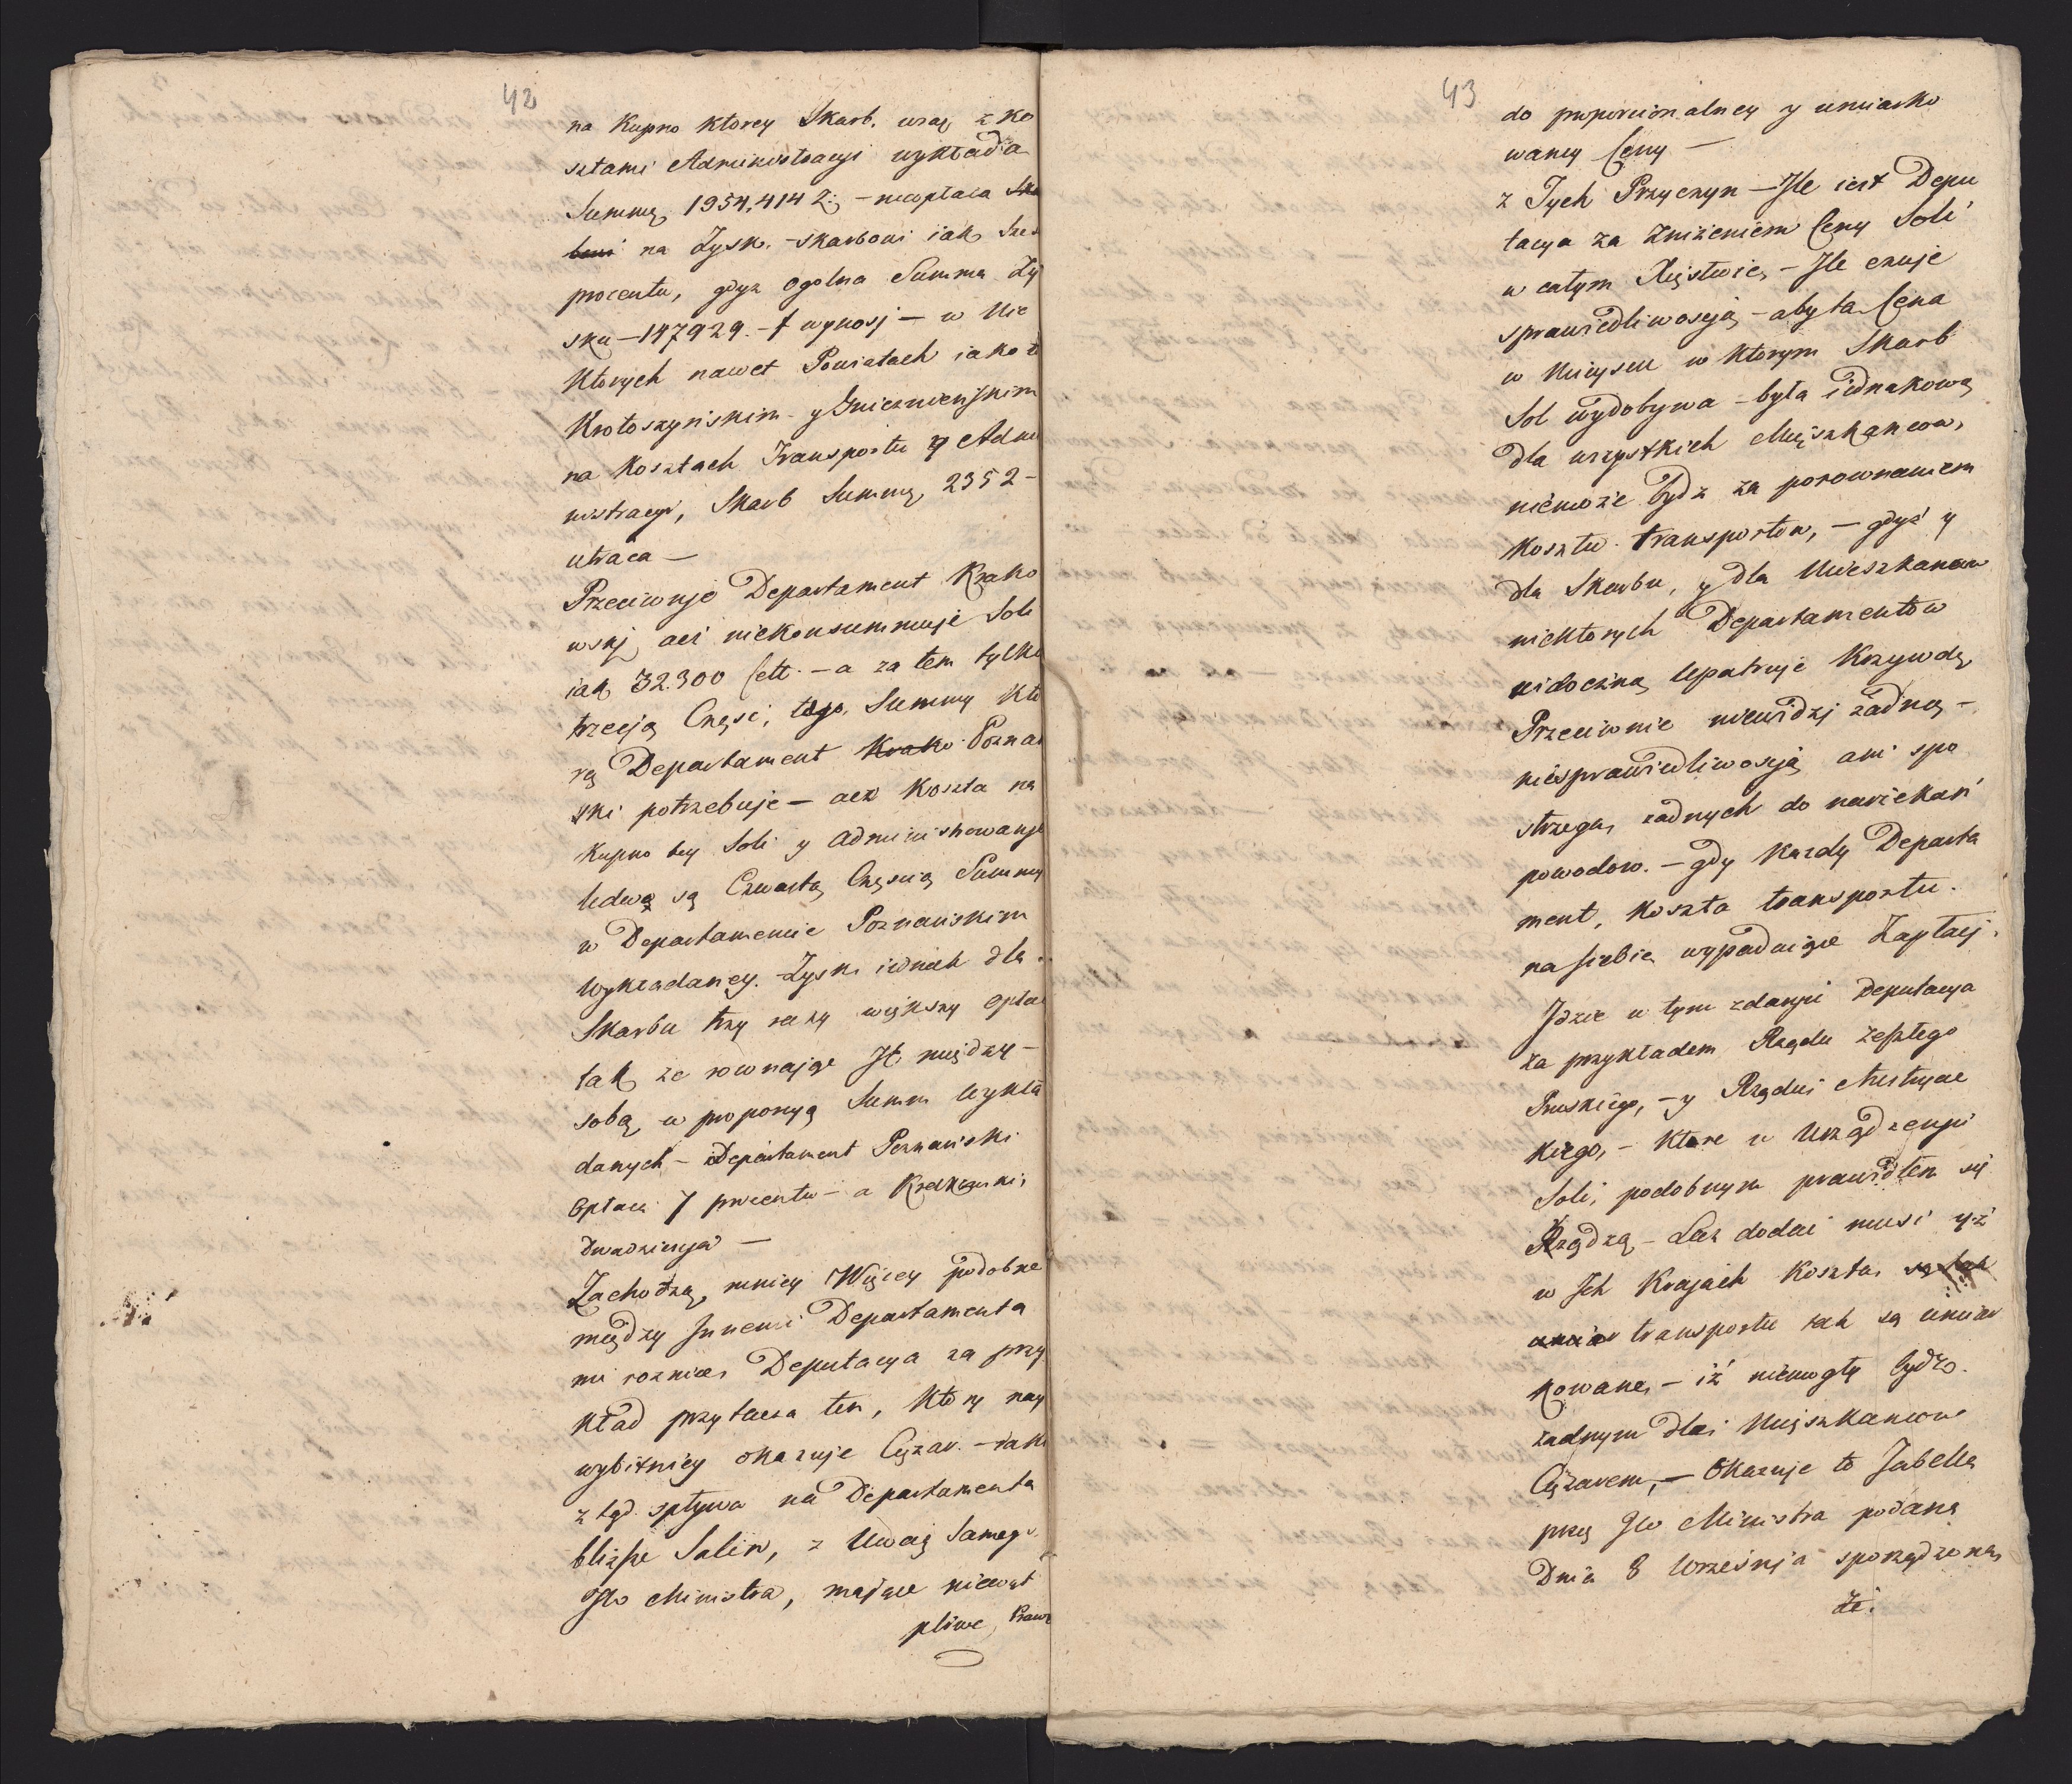 42
na Kupno ktorey Skarb. wraz z ko
sztami Administracyi wykłada
Summę 1954,414 Z: – nieopłaca Ska
bowi na Zysk. – skarbowi iak Sześ
procentu, gdyz ogolna Summa Zy
sku – 147929. – f wynosj – w Nie
ktorych nawet Powiatach iako to
Krotoszyńskim – y Gnieznieńskim
na Kosztach Transportu y Admi
nistracyi, Skarb Summę 2352 –
utraca –
Przeciwnje Departament Krako
wskj acz niekonsummuje Soli
iak 32.300 Cett. – a za tem tylko
trzecją Częsć, tego Summy Kto
rą Departament Krako Poznań
ski potrzebuje – acz Koszta na
Kupno tey Soli y administrowanje
ledwo są Czwartą Częscią Summy
w Departamencie Poznańskim
Wykładaney. Zysk iednak dla
Skarbu trzy razy większy opłac
tak ze rownając Je między –
sobą w proporcyą Summ Wykła
danych – Departament Poznański
Opłaca 7 procentu – a Krakowski
Dwadziescja –
Zachodzą mniey Więcey podobne
między Innemi Departamenta
mi roznice, Deputacya za przy
kład przytacza ten, Ktory nay
wybitniey okazuje Cięzar. – iaki
z tąd spływa na Departamenta
bliższe Salin, z Uwag Samego
JW Ministra, mające niewąt
pliwe Prawo
43
do proporcionalney y umiarko
waney Ceny –
z Tych Przyczyn – Ile iest Depu
tacya za Znizeniem Ceny Soli
w całym Xięstwie, – Ile czuje
sprawiedliwoscją – aby ta Cena
w Mieyscu w ktorym Skarb
Sol wydobywa – była iednakową
dla wszystkich Mięszkancow,
niemoze bydz za porownaniem
Kosztu transportow, – gdyż y
dla Skarbu, y dla Mieszkancow
niektorych Departamentow
widoczną upatruje Krzywdę,
Przeciwnie niewidzj zadney –
niesprawiedliwoscją ani spo
strzega, zadnych do narzekań
powodow. – gdy Kazdy Departa
ment, Koszta transportu.
na siebie wypadaiące Zapłacj.
Idzie w tym zdanju Deputacya
za przykładem Rządu zeszłego
Pruskiego, – y Rządu Austryac
kiego, – Ktore w Urządzenju
Soli, podobnym prawidłem się
Rządzą – Lecz dodać musi yż
w Ich Krajach Koszta są tak
umiar transportu tak są umiar
kowane, – iż niemogły bydz.
zadnym dla Mięszkancow
Cięzarem, – Okazuje to Tabella
przez JW Ministra podana
Dnia 8 Wrzesnja sporządzona,
że.